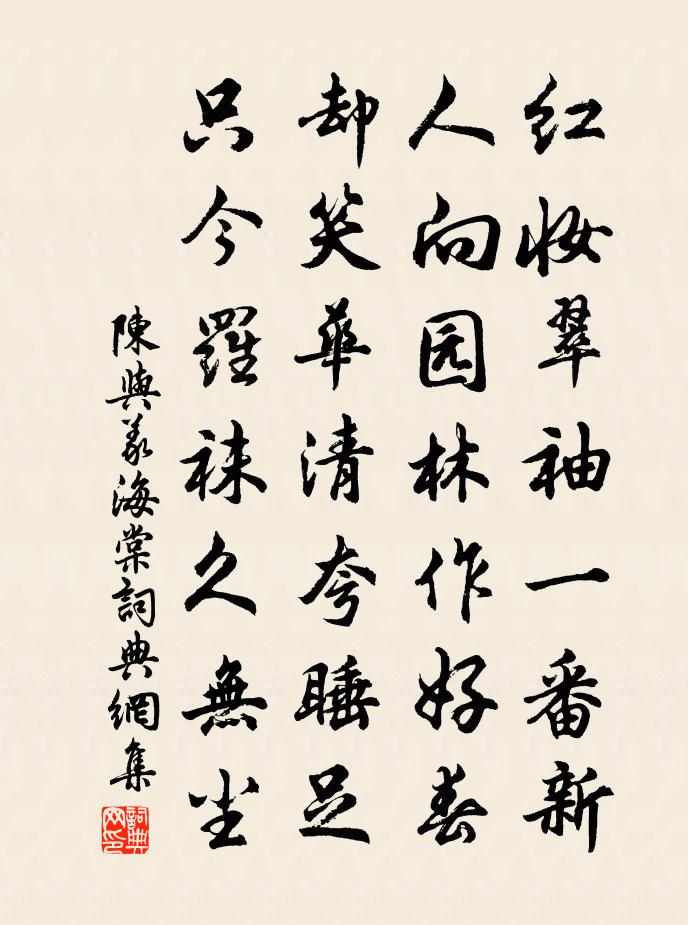 红妆翠袖一番新
人向园林作好春
却笑華清夸睡足
只今羅袜久無尘
陳與義海棠詞典網集
詞典网印